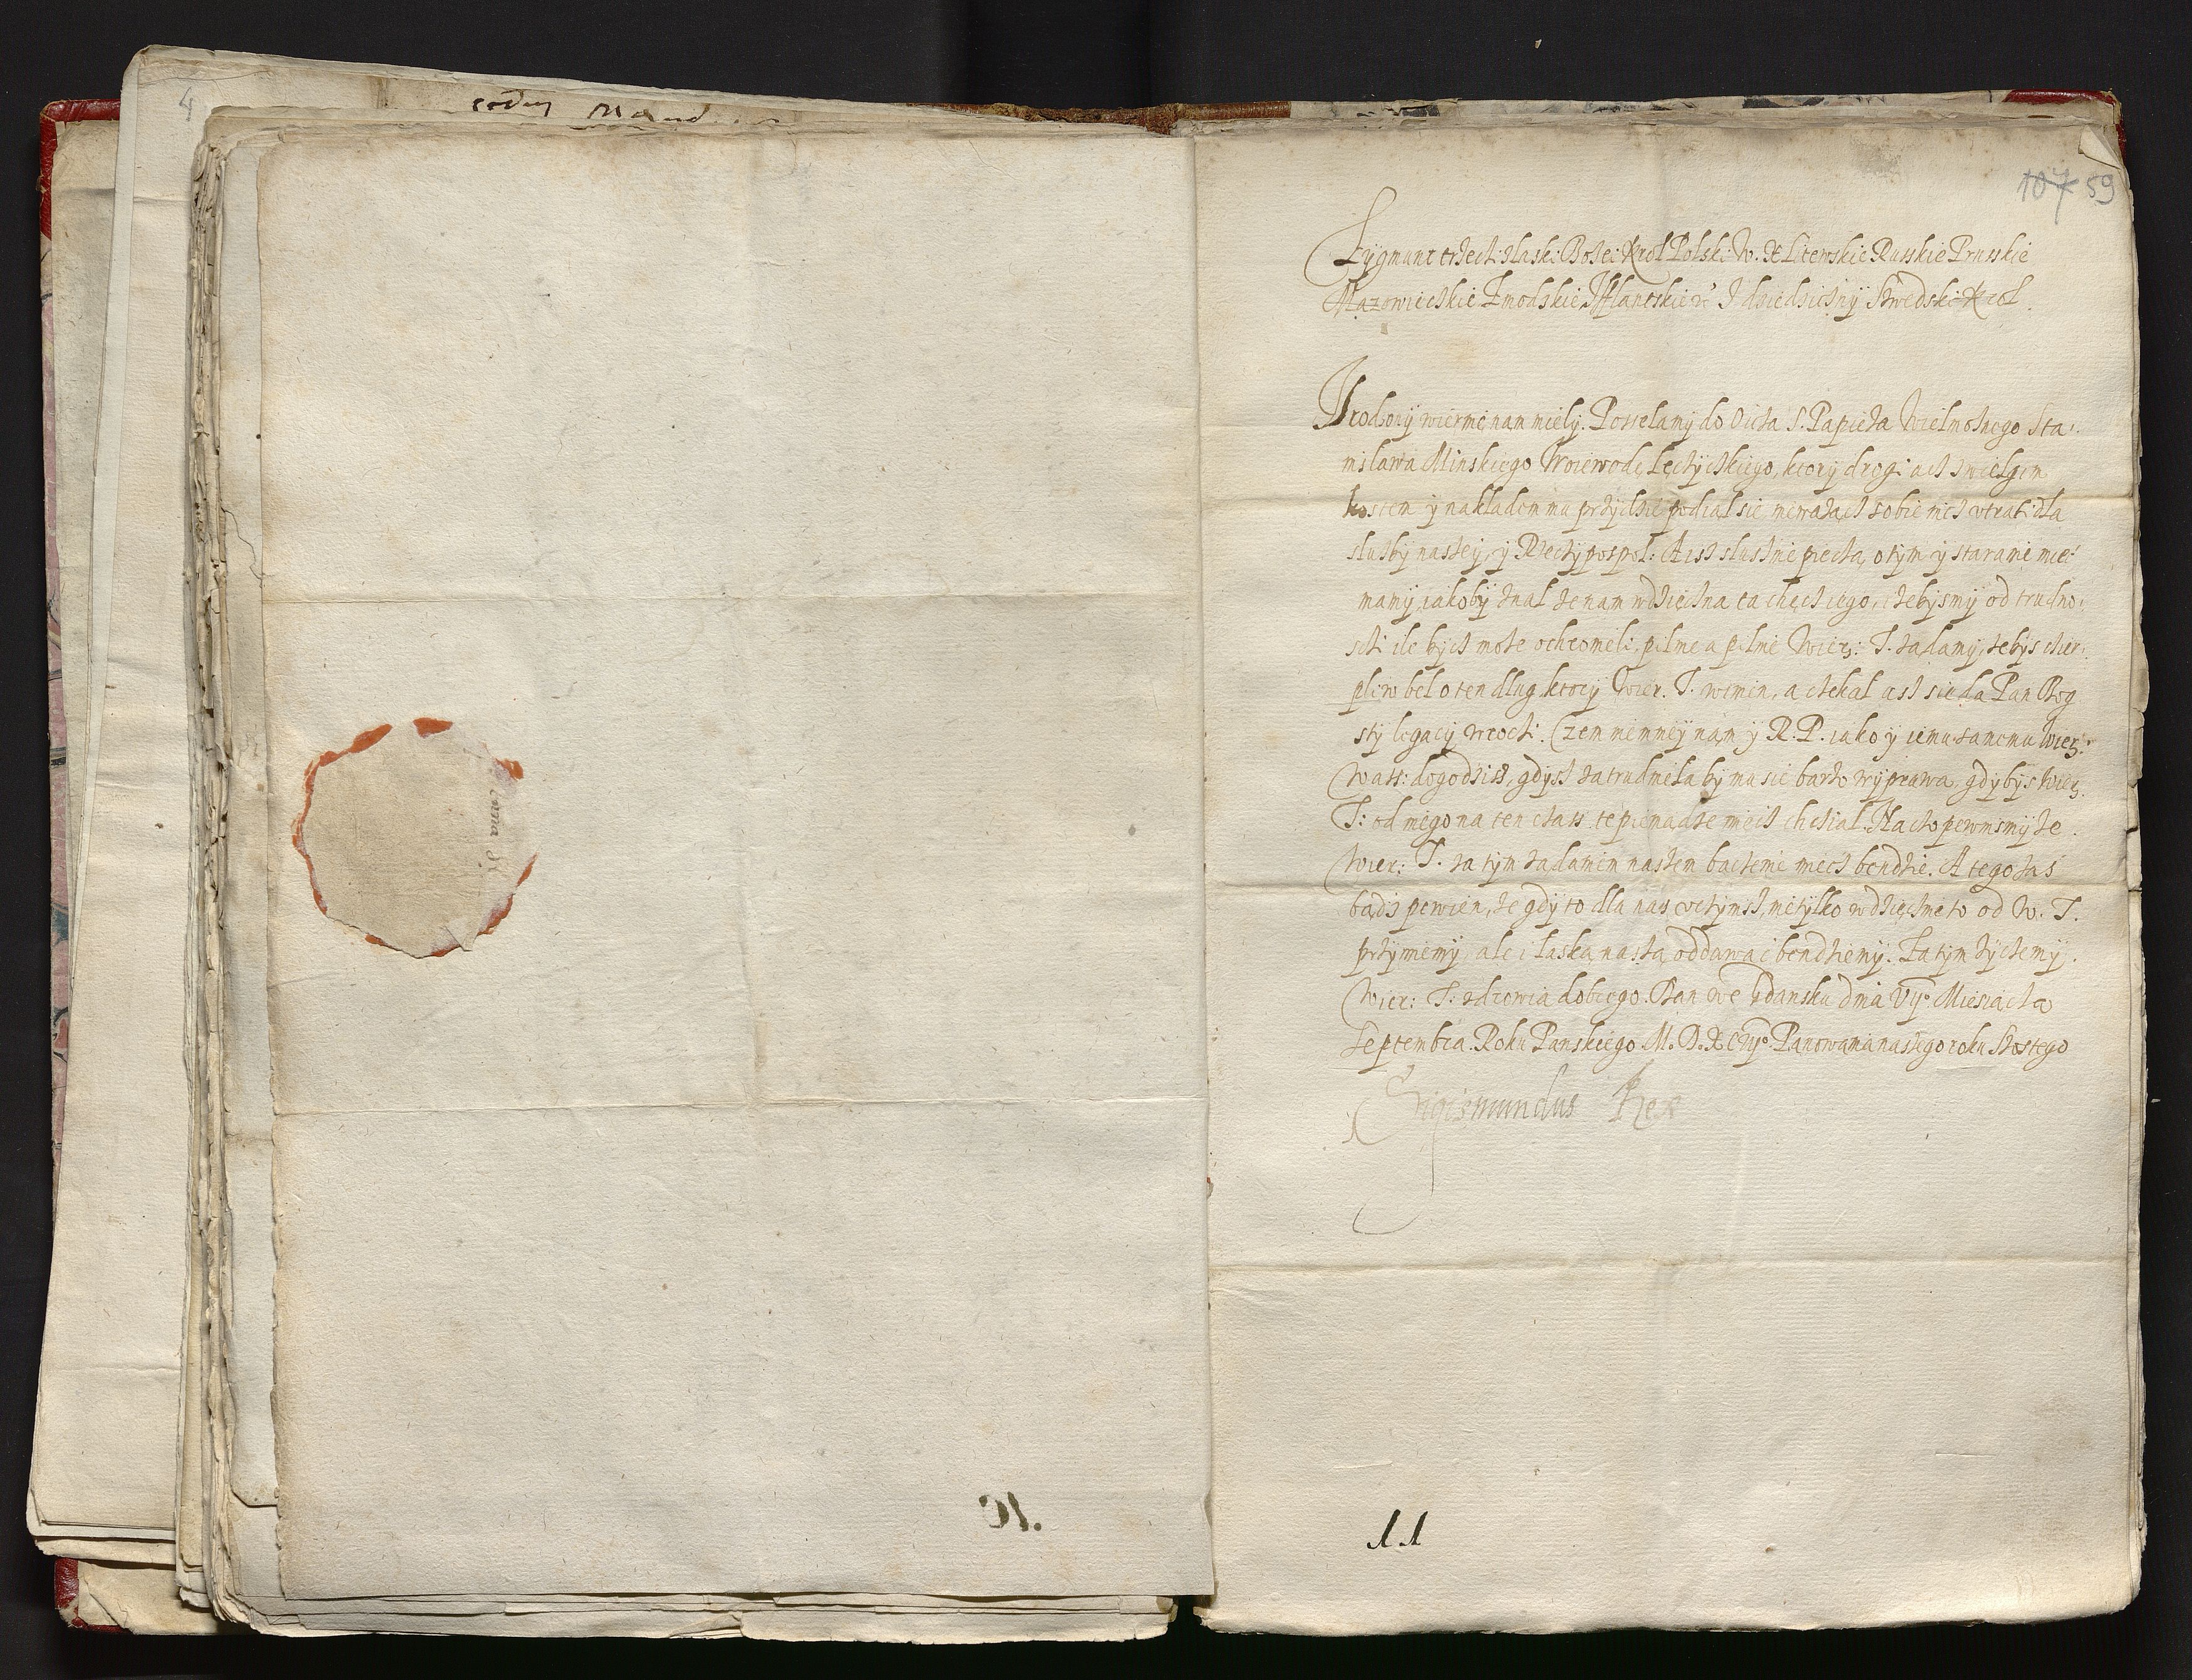 4
107 59
Zygmunt trzeci z lask: Bozei Krol Polski W. X Litewskie Russkie Prusskie
Mazowieckie Zmodzkie Iflantskie &c I dziedziczny Szwedski Krol.
Urodzony wiernie nam miely. Posselamy do Oica S. Papieza Wielmoznego Sta:
nislawa Minskiego Woiewode Leczyckiego, ktory drogi acz z wielgim
kostem y nakladem mu przydzie podial sie niewazacz sobie nicz utrat dla
sluzby naszey, y Rzeczypospol: A isz slusznie piecza, o tym y staranie miec
mamy, iakoby znal ze nam wdzieczna ta checz iego, zebysmy od trudno:
sczi ile bycz moze ochronieli: pilnie a pilnie Wier: T. zadamy, zebys cier:
pliw bel o ten dlug, ktory Wier. T. winien, a czekal asz sie da Pan Bog
s ty legaciy wroczi. Czem niemniey nam y R. P. iako y iemu samemu Wier:
Wass: dogodzisz, gdysz zatrudniela by mu sie barzo wyprawa, gdybys Wier.
T: od niego na ten czass te pieniadze miecz chcial. Na czo pewnismy ze
Wier: T. za tym zadaniem naszem baczenie miecz bendzie. A tego zas
badz pewien, ze gdy to dla nas uczynisz, nie tylko wdziecznie to od W. T.
przymiemy, ale i laska nasza oddawac bendziemy. Zatym zyczemy
Wier: T. zdrowia dobrego. Dan we Gdansku dnia VIIo Miesiacza
Septembra. Roku Panskiego M. D. XCIIIo Panowania naszego roku Szostego
Sigismundus Rex
11